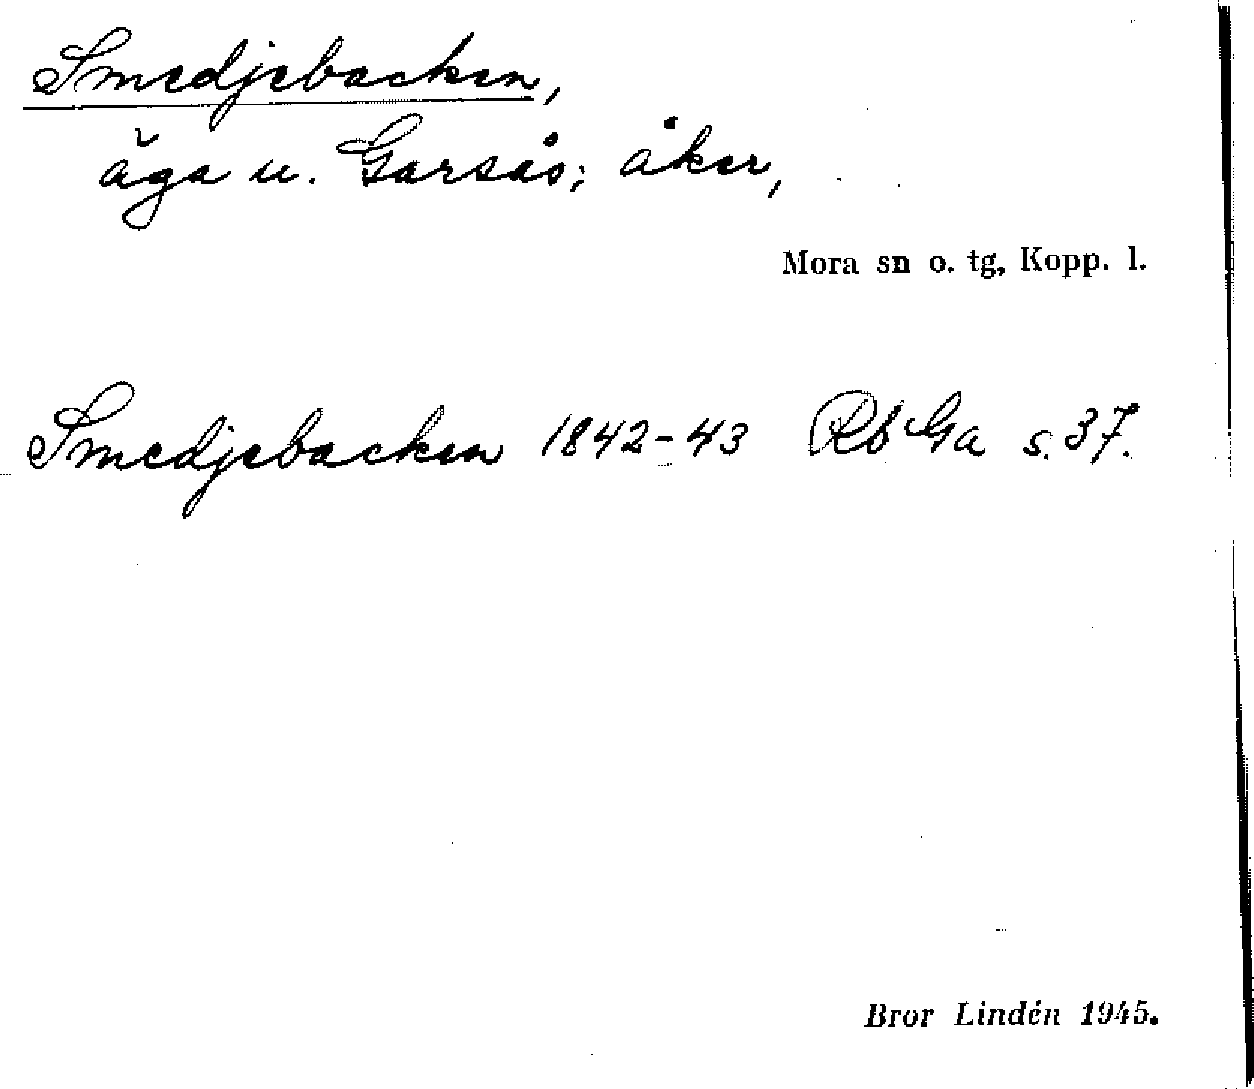 Smedjebacken,
äga u. Garsås; åker,
Mora sn o. tg, Kopp. l.
Smedjebacken 1842-43 Rb Ga s. 37.
Bror Lindén 1945.